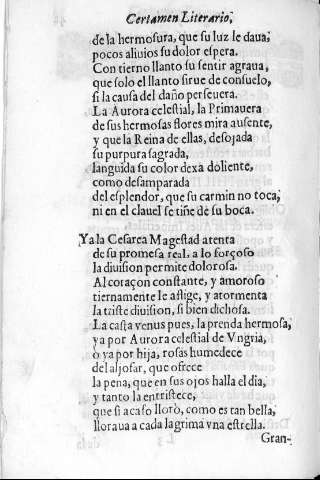 Certamen Literario,
de la hermosura, que su luz le daua,
pocos aliuios su dolor espera.
Con tierno llanto su sentir agraua,
que solo el llanto sirue de consuelo,
si la causa del daño perseuera.
La Aurora celestial, la Primauera
de sus hermosas flores mira ausente,
y que la Reina de ellas, desojada
su purpura sagrada,
languida su color dexa doliente,
como desamparada
del esplendor, que su carmin no toca,
ni en el clauel se tiñe de su boca.
Ya la Cesarea Magestad atenta
de su promesa real, a lo forçoso
la diuision permite dolorosa.
Al coraçon constante, y amoroso
tiernamente le aflige, y atormenta
la triste diuision, si bien dichosa.
La casta venus pues, la prenda hermosa,
ya por Aurora celestial de Vngria,
o ya por hija, rosas humedece
del aljofar, que ofrece
la pena, que en sus ojos halla el dia,
y tanto la entristece,
que si acaso llorò, como es tan bella,
lloraua a cada lagrima vna estrella.
Gran-